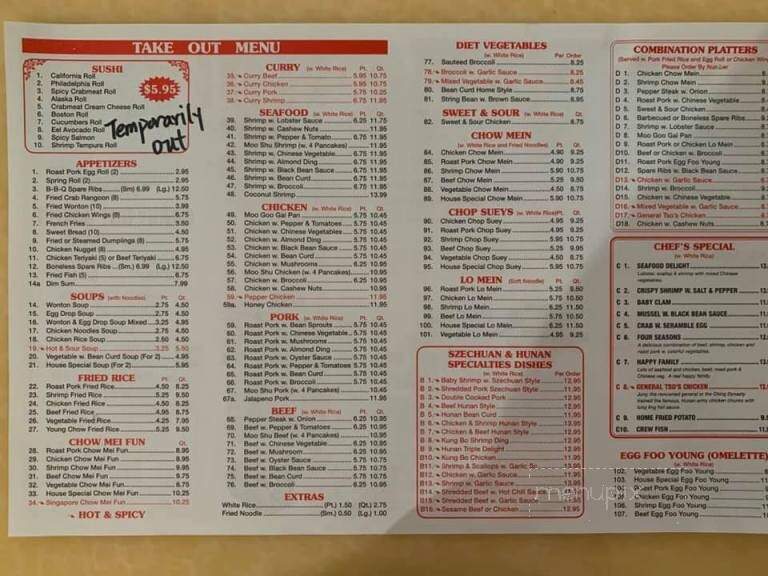 TAKE OUT MENU
SUSHI
1. California Roll
2. Philadelphia Roll
3. Spicy Crabmeat Roll
4. Alaska Roll
5. Crabmeat Cream Cheese Roll
6. Boston Roll
7. Cucumbers Roll
8. Eel Avocado Roll
9. Spicy Salmon
10. Shrimp Tempura Roll
$5.95
Temporarily
out
APPETIZERS
1. Roast Pork Egg Roll (2) 2.95
2. Spring Roll (2) 2.95
3. B-B-Q Spare Ribs (Sm) 6.99 (Lg.) 12.50
4. Fried Crab Rangoon (8) 5.75
5. Fried Wonton (10) 3.99
6. Fried Chicken Wings (8) 6.75
7. French Fries 3.50
8. Sweet Bread (10) 4.50
9. Fried or Steamed Dumplings (8) 5.75
10. Chicken Nugget (8) 4.95
11. Chicken Teriyaki (5) or Beef Teriyaki 6.75
12. Boneless Spare Ribs (Sm.) 6.99 (Lg.) 12.50
13. Fried Fish (5) 6.75
14a Dim Sum 7.99
SOUPS (with Noodles) Pt. Qt.
14. Wonton Soup 2.75 4.50
15. Egg Drop Soup 2.75 4.50
16. Wonton & Egg Drop Soup Mixed 3.25 4.95
17. Chicken Noodles Soup 2.75 4.50
18. Chicken Rice Soup 2.50 4.50
19. Hot & Sour Soup 3.25 5.50
20. Vegetable w. Bean Curd Soup (For 2) 4.95
21. House Special Soup (For 2) 5.95
FRIED RICE Pt. Qt.
22. Roast Pork Fried Rice 4.50 8.25
23. Shrimp Fried Rice 5.25 9.50
24. Chicken Fried Rice 4.50 8.25
25. Beef Fried Rice 4.95 8.75
26. Vegetable Fried Rice 4.25 7.95
27. Young Chow Fried Rice 5.25 9.50
CHOW MEI FUN Qt.
28. Roast Pork Chow Mei Fun 8.95
29. Chicken Chow Mei Fun 8.95
30. Shrimp Chow Mei Fun 9.95
31. Beef Chow Mei Fun 9.75
32. Vegetable Chow Mei Fun 8.75
33. House Special Chow Mei Fun 10.25
34. Singapore Chow Mei Fun 10.25
HOT & SPICY
CURRY (w. White Rice) Pt. Qt.
35. Curry Beef 5.95 10.75
36. Curry Chicken 5.95 10.75
37. Curry Pork 5.75 10.25
38. Curry Shrimp 6.75 11.95
SEAFOOD (w. White Rice) Pt. Qt.
39. Shrimp w. Lobster Sauce 6.25 11.75
40. Shrimp w. Cashew Nuts 11.95
41. Shrimp w. Pepper & Tomato 6.75 11.95
42. Moo Shu Shrimp (w. 4 Pancakes) 11.95
43. Shrimp w. Chinese Vegetable 6.75 11.95
44. Shrimp w. Almond Ding 6.75 11.95
45. Shrimp w. Black Bean Sauce 6.75 11.95
46. Shrimp w. Bean Curd 6.75 11.95
47. Shrimp w. Broccoli 6.75 11.95
48. Coconut Shrimp 13.99
CHICKEN (w. White Rice) Pt. Qt.
49. Moo Goo Gai Pan 5.75 10.45
50. Chicken w. Pepper & Tomatoes 5.75 10.45
51. Chicken w. Chinese Vegetables 5.75 10.45
52. Chicken w. Almond Ding 5.75 10.45
53. Chicken w. Black Bean Sauce 5.75 10.45
54. Chicken w. Bean Curd 5.75 10.45
55. Chicken w. Mushrooms 6.25 10.95
56. Moo Shu Chicken (w. 4 Pancakes) 10.95
57. Chicken w. Broccoli 6.25 10.95
58. Chicken w. Cashew Nuts 10.95
59. Pepper Chicken 11.95
59a. Honey Chicken 11.95
PORK (w. White Rice) Pt. Qt.
59. Roast Pork w. Bean Sprouts 5.75 10.45
60. Roast Pork w. Chinese Vegetable 5.75 10.45
61. Roast Pork w. Mushrooms 5.75 10.45
62. Roast Pork w. Almond Ding 5.75 10.45
63. Roast Pork w. Oyster Sauce 5.75 10.45
64. Roast Pork w. Pepper & Tomatoes 5.75 10.45
65. Roast Pork w. Bean Curd 5.75 10.45
66. Roast Pork w. Broccoli 5.75 10.45
67. Moo Shu Pork (w. 4 Pancakes) 10.45
67a. Jalapeno Pork 11.95
BEEF (w. White Rice) Pt. Qt.
68. Pepper Steak w. Onion 6.25 10.95
69. Beef w. Pepper & Tomatoes 6.25 10.95
70. Moo Shu Beef (w. 4 Pancakes) 10.95
71. Beef w. Chinese Vegetable 6.25 10.95
72. Beef w. Mushroom 6.25 10.95
73. Beef w. Oyster Sauce 5.75 10.75
74. Beef w. Black Bean Sauce 5.75 10.75
75. Beef w. Bean Curd 5.75 10.75
76. Beef w. Broccoli 6.25 10.95
EXTRAS
White Rice (Pt.) 1.50 (Qt.) 2.75
Fried Noodle (Sm.) 0.50 (Lg.) 1.00
DIET VEGETABLES
(w. White Rice) Per Order
77. Sauteed Broccoli 8.25
78. Broccoli w. Garlic Sauce 8.25
79. Mixed Vegetable w. Garlic Sauce 8.45
80. Bean Curd Home Style 8.75
81. String Bean w. Brown Sauce 8.95
SWEET & SOUR (w. White Rice)
82. Sweet & Sour Chicken 8.75
CHOW MEIN
(w. White Rice and Fried Noodles) Pt. Qt.
84. Chicken Chow Mein 4.90 9.25
85. Roast Pork Chow Mein 4.90 9.25
86. Shrimp Chow Mein 5.90 10.75
87. Beef Chow Mein 5.25 9.50
88. Vegetable Chow Mein 4.50 8.75
89. House Special Chow Mein 5.90 10.75
CHOP SUEYS (w. White Rice) Pt. Qt.
90. Chicken Chop Suey 4.95 9.25
91. Roast Pork Chop Suey 4.95 9.25
92. Shrimp Chop Suey 5.90 10.75
93. Beef Chop Suey 5.25 9.95
94. Vegetable Chop Suey 4.50 8.75
95. House Special Chop Suey 5.90 10.75
LO MEIN (Soft Noodle) Pt. Qt.
96. Roast Pork Lo Mein 5.25 9.50
97. Chicken Lo Mein 5.75 10.50
98. Shrimp Lo Mein 6.25 11.50
99. Beef Lo Mein 5.75 10.50
100. House Special Lo Mein 6.25 11.50
101. Vegetable Lo Mein 4.95 9.25
SZECHUAN & HUNAN
SPECIALTIES DISHES
(w. White Rice) Per Order
B 1. Baby Shrimp w. Szechuan Style 12.95
B 2. Shredded Pork Szechuan Style 11.95
B 3. Double Cooked Pork 11.95
B 4. Beef Hunan Style 12.95
B 5. Hunan Bean Curd 11.95
B 6. Chicken & Shrimp Hunan Style 13.95
B 7. Chicken & Beef Hunan Style 13.95
B 8. Kung Bo Shrimp Ding 12.95
B 9. Hunan Triple Delight 13.95
B10. Kung Bo Chicken 11.95
B11. Shrimp & Scallops w. Garlic
B12. Chicken w. Garlic Sauce
B13. Shrimp w. Garlic Sauce
B14. Shredded Beef w. Hot Chili Sauce
B15. Shredded Beef w. Garlic Sauce
B16. Sesame Beef or Chicken 12.95
menupix
COMBINATION PLATTERS
(Served w. Pork Fried Rice and Egg Roll or Chicken Win
Please Order By Number
D 1. Chicken Chow Mein
D 2. Shrimp Chow Mein
D 3. Pepper Steak w. Onion
D 4. Roast Pork w. Chinese Vegetable
D 5. Sweet & Sour Chicken
D 6. Barbecued or Boneless Spare Ribs
D 7. Shrimp w. Lobster Sauce
D 8. Moo Goo Gai Pan
D 9. Roast Pork or Chicken Lo Mein
D10. Beef or Chicken w. Broccoli
D11. Roast Pork Egg Foo Young
D12. Spare Ribs w. Black Bean Sauce
D13. Chicken w. Garlic Sauce
D14. Shrimp w. Broccoli
D15. Chicken w. Chinese Vegetable
D16. Mixed Vegetable w. Garlic Sauce
D17. General Tso's Chicken
D18. Chicken w. Cashew Nuts
CHEF'S SPECIAL
(w. White Rice)
C 1. SEAFOOD DELIGHT
Lobster, scallop & shrimp with mixed Chinese
vegetables.
C 2. CRISPY SHRIMP W. SALT & PEPPER
C 3. BABY CLAM
C 4. MUSSEL W. BLACK BEAN SAUCE
C 5. CRAB W. SCRAMBLE EGG
C 6. FOUR SEASONS
A delicious combination of beef, shrimp, chicken and
roast pork w. colorful vegetables.
C 7. HAPPY FAMILY
Lots of seafood and chicken, beef, roast pork &
Chinese veg. A real happy family.
C 8. GENERAL TSO'S CHICKEN
C 9. HOME FRIED POTATO
C10. CREW FISH
EGG FOO YOUNG (OMELETTE)
(w. White Rice)
102. Vegetable Egg Foo Young
103. House Special Egg Foo Young
Roast Pork Egg Foo Young
Chicken Egg Foo Young
106. Shrimp Egg Foo Young
107. Beef Egg Foo Young